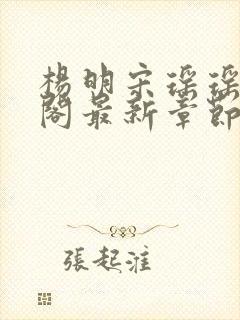 楊明宋瑤瑤
閣最新章節
張起淮